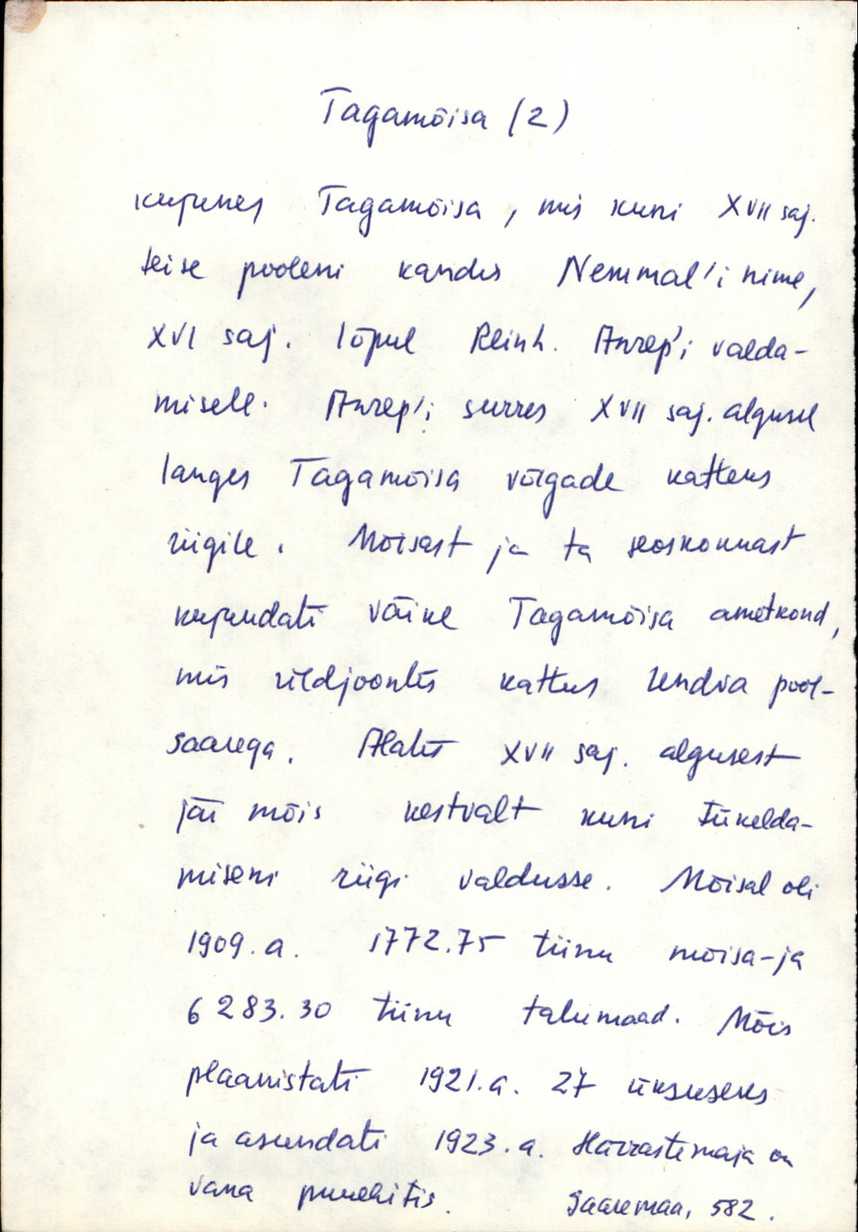 Tagamõisa (2)
kujunes Tagamõisa, mis kuni XVII saj.
teise pooleni kandis Nemmal'i nime,
XVI saj. lõpul Reinh. Anrep'i valda-
misele. Anrep'i surres XVII saj. algusel
langes Tagamõisa võlgade katteks
riigile. Mõisast ja ta seoskonnast
kujundati väike Tagamõisa ametkond,
mis üldjoontes kattus Undva pool-
saarega. Alates XVII saj. algusest
jäi mõis kestvalt kuni tükelda-
miseni riigi valdusse. Mõisal oli
1909.a. 1772.75 tiinu mõisa- ja
6283.30 tiinu talumaad. Mõis
plaanistati 1921.a. 27 üksuseks
ja asundati 1923.a. Härrastemaja on
vana puuehitis. Saaremaa, 582.